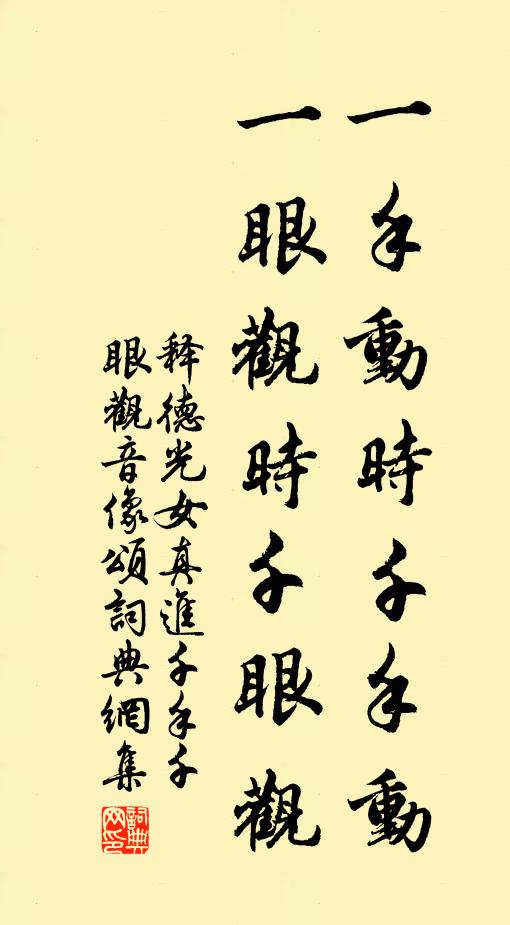 一手動時千手動
一眼觀時千眼觀
释德光女真進千手千
眼觀音像頌詞典網集
詞典
网印